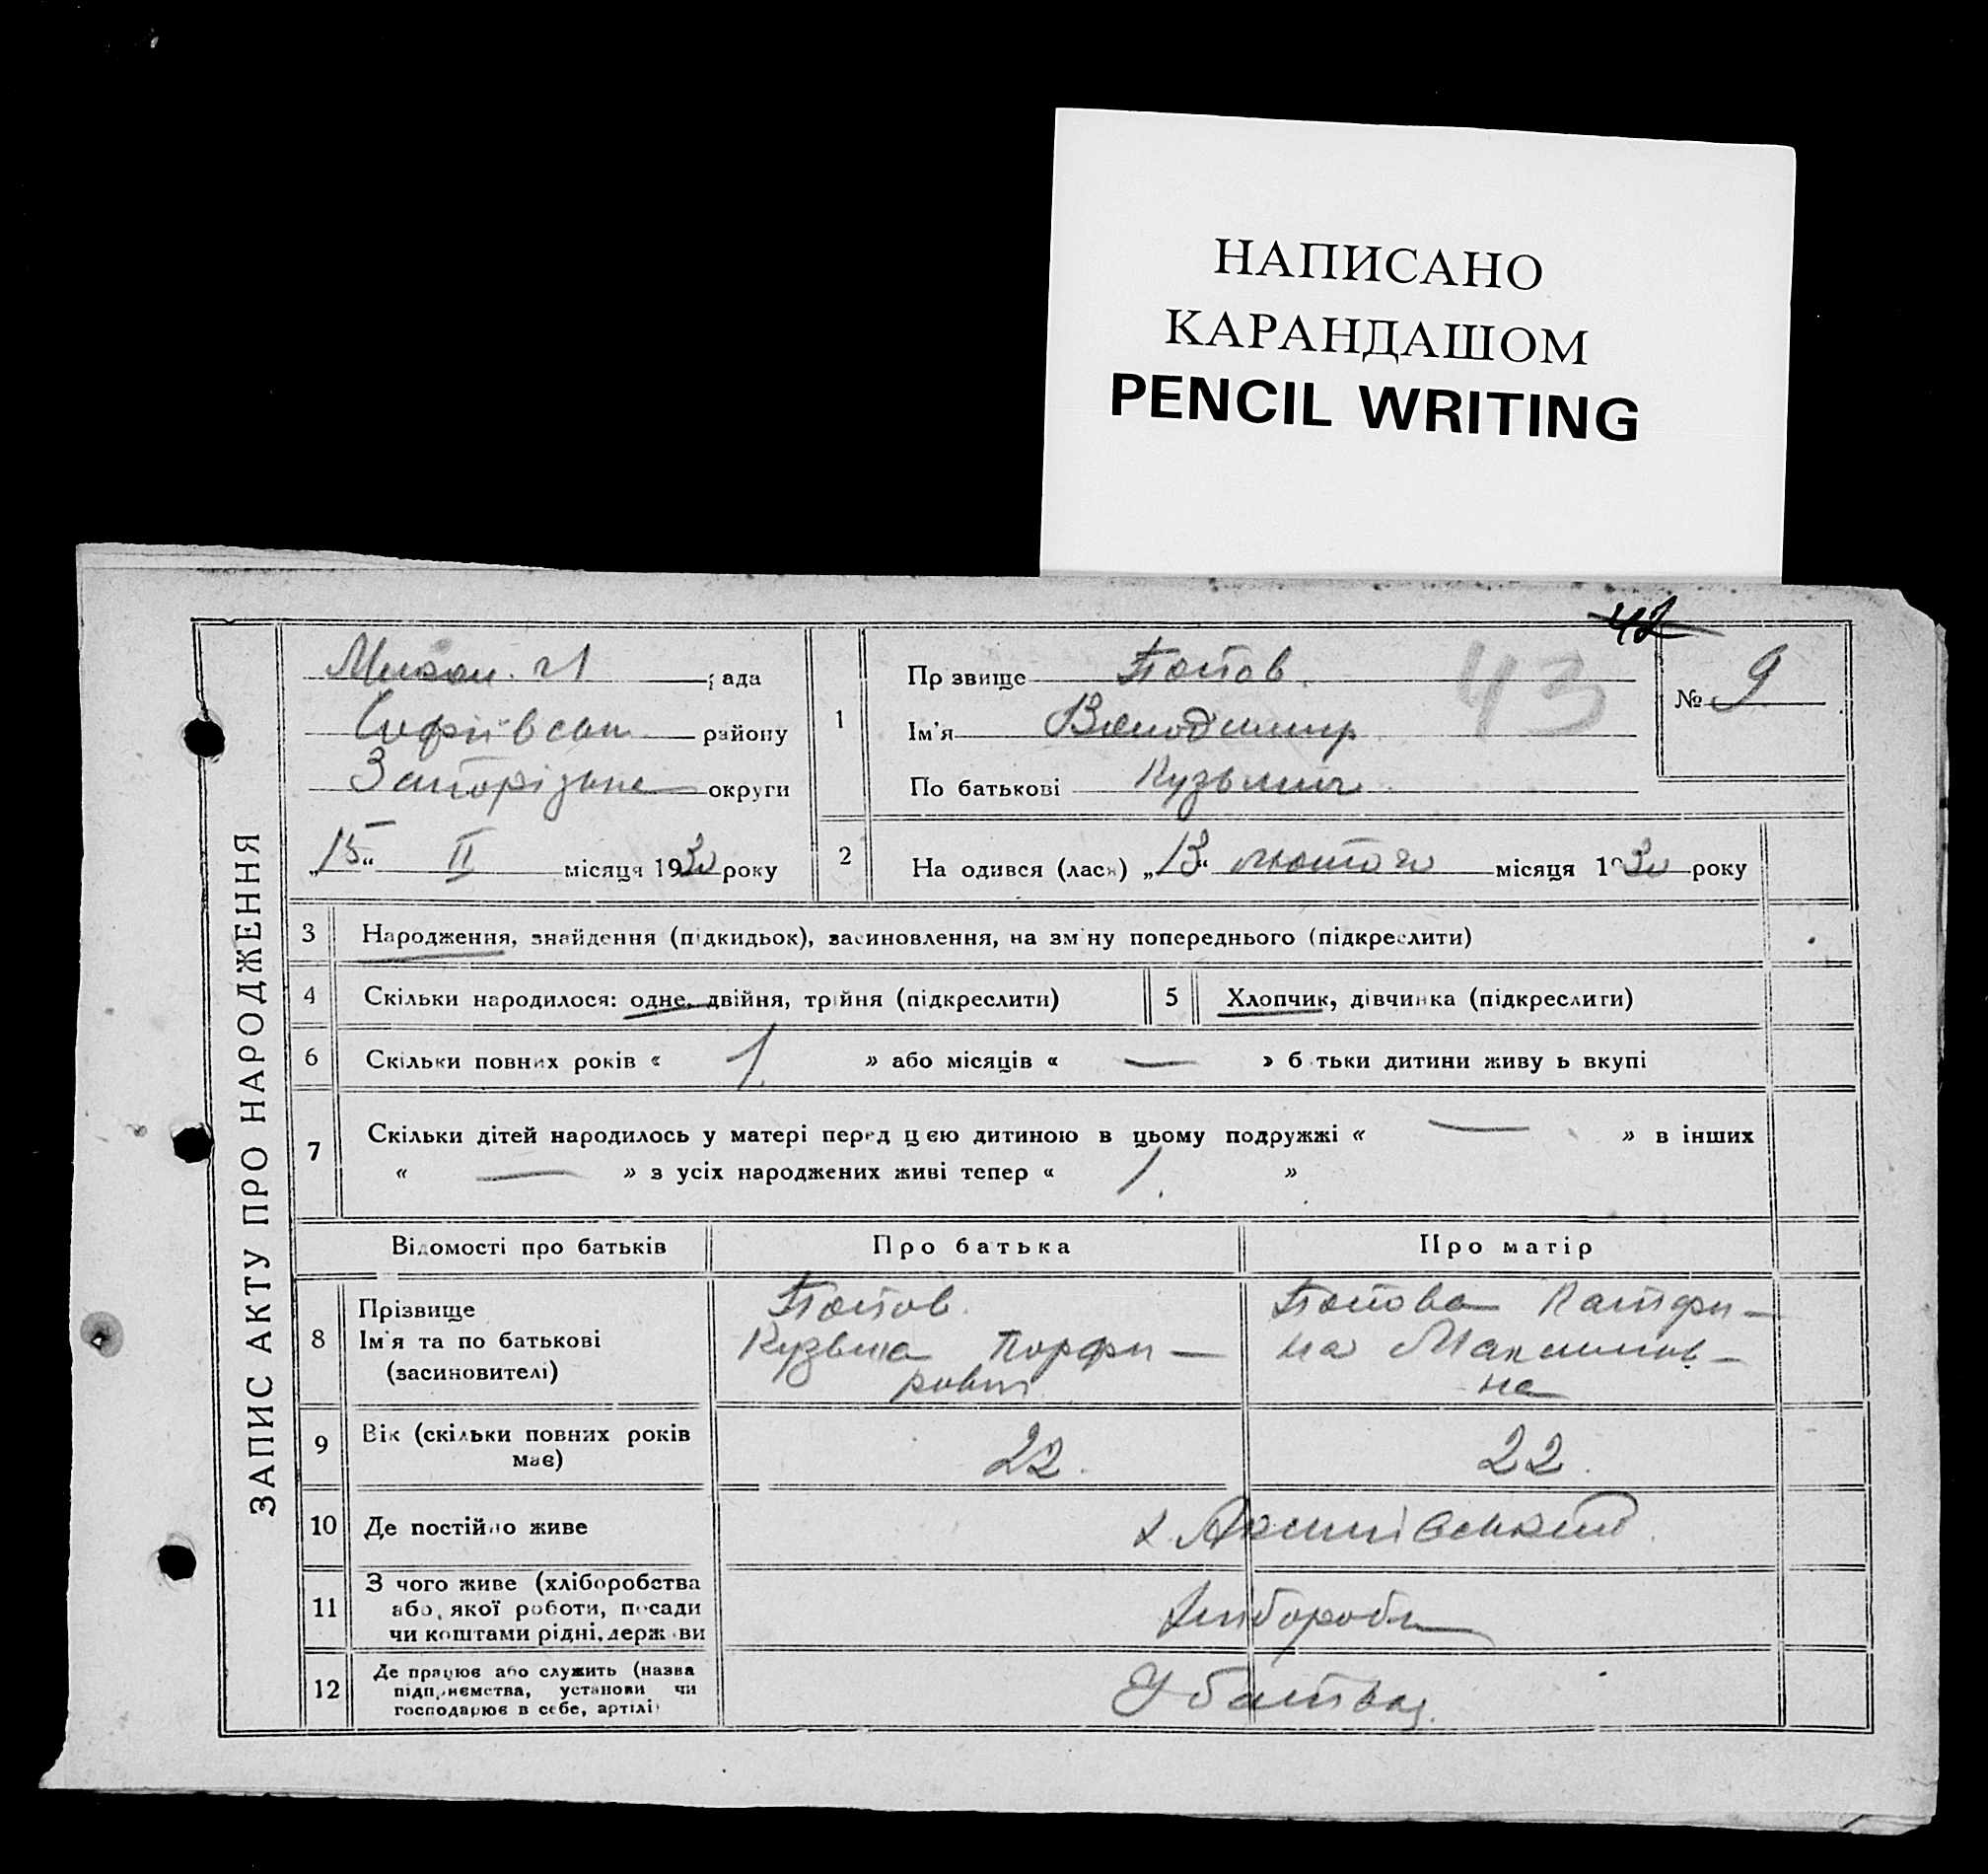 НАПИСАНО
КАРАНДАШОМ
PENCIL WRITING
42
43
ЗАПИС АКТУ ПРО НАРОДЖЕННЯ
рада
району
округи
„15“ II місяця 1930 року
1
Прзвище Попов.
Ім'я Володимир
По батькові Кузьмич
№ 9
2 На одився (лася) „13“ лютого місяця 1930 року
3 Народження, знайдення (підкидьок), засиновлення, на зміну попереднього (підкреслити)
4 Скільки народилося: одне, двійня, трійня (підкреслити)
5 Хлопчик, дівчинка (підкреслити)
6 Скільки повних років « 1. » або місяців « — » б тьки дитини живу ь вкупі
7 Скільки дітей народилось у матері перед цією дитиною в цьому подружжі « — » в інших
« — » з усіх народжених живі тепер « 1. »
Відомості про батьків Про батька Про матір
8 Прізвище
Ім'я та по батькові
(засиновителі)
Попов.
Кузьма Порфи—
рович
Попова Катери—
на Максимов—
на
9 Вік (скільки повних років
має)
22.
22.
10 Де постійно живе
х.
11 З чого живе (хліборобства
або, якої роботи, посади
чи коштами рідні, держ ви
Хлібороб
12 Де працює або служить (назва
підприємства, установи чи
господарює в себе, артілі)
У батька.